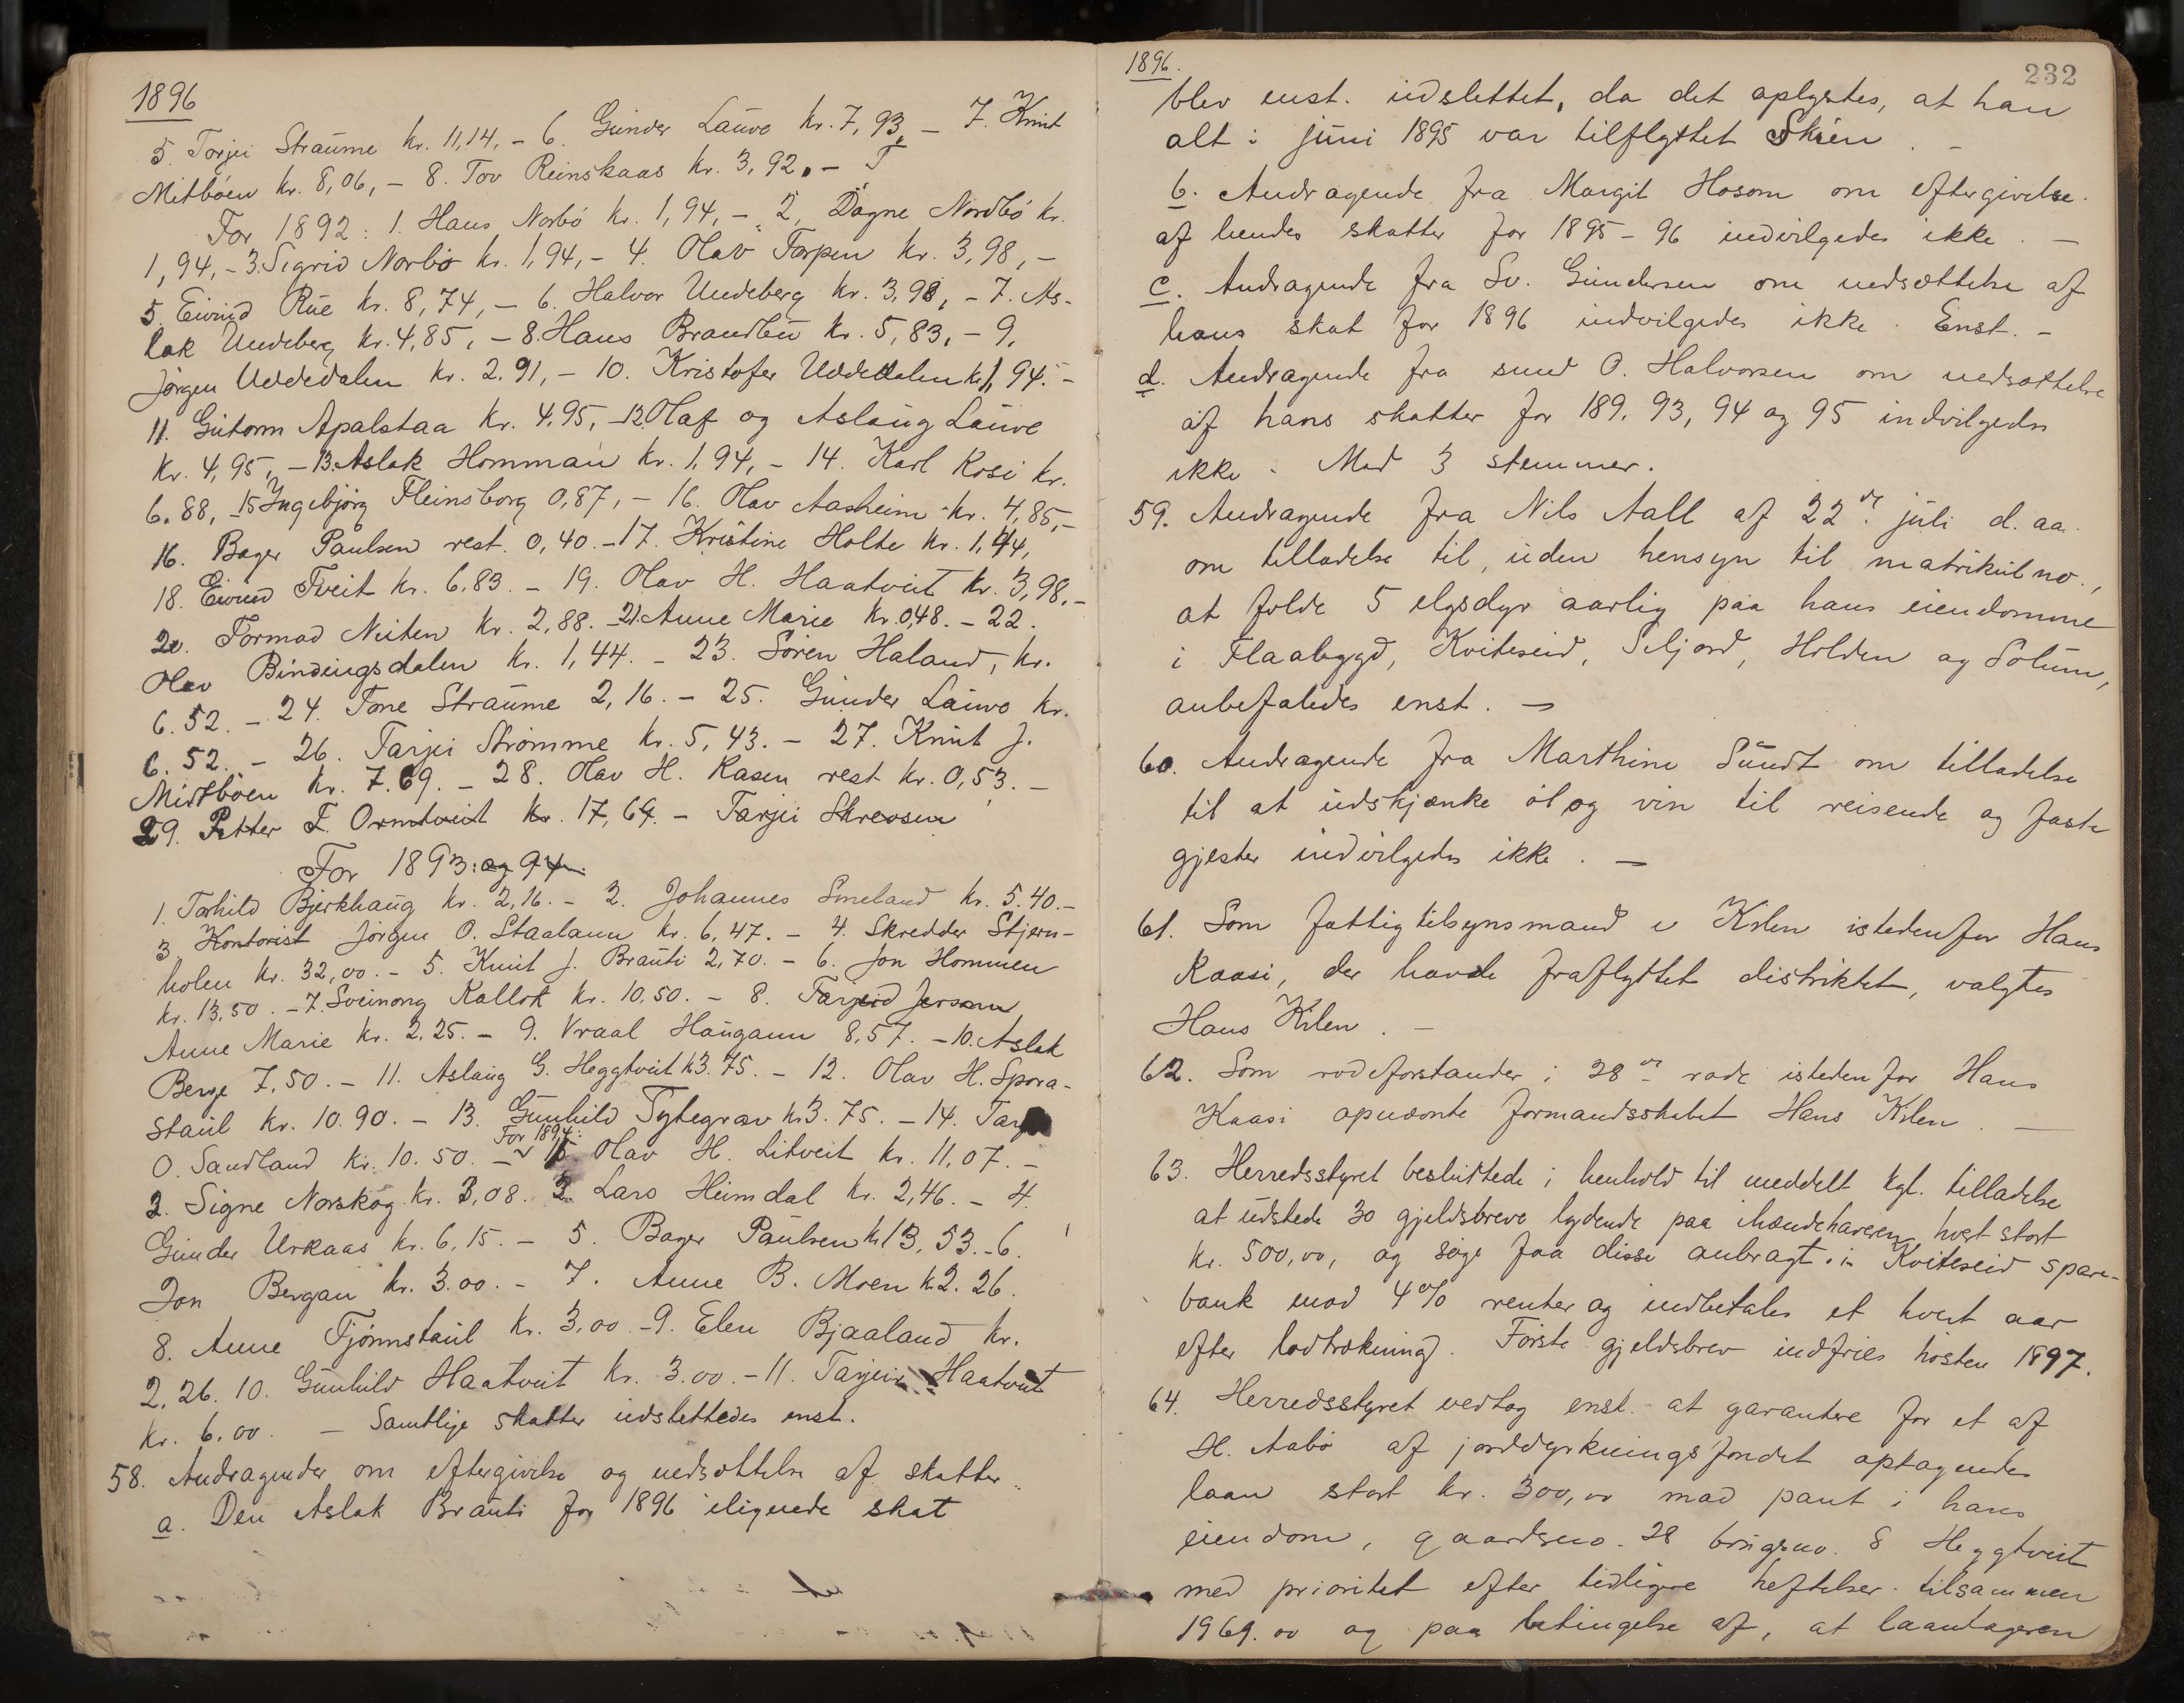 1896
5. Torjei Straume kr. 11,14, – 6. Gunder Lauvo kr. 7,93, – 7. Knut
Mitbøen kr. 8,06, – 8. Tov Reinskaas kr. 3,92, – T
For 1892: 1. Hans Norbö kr. 1,94, – 2. Dagne Nordbö kr.
1,94, – 3. Sigrid Norbö kr. 1,94, – 4. Olav Tarpen kr. 3,98, –
5. Eivind Rue kr. 8,74, – 6. Halvor Undeberg kr. 3,98, – 7. As-
lak Undeberg kr. 4,85, – 8. Hans Brandbu kr. 5,83, – 9.
Jørgen Uddedalen kr. 2.91, – 10. Kristofer Uddedalen kr. 1,94. –
11. Gutorm Apalstaa kr. 4,95, – 12. Olaf og Aslaug Lauve
kr. 4,95, – 13. Aslak Homman kr. 1,94, – 14. Karl Rosi kr.
6.88, – 15 Ingebjörg Fleinsborg 0,87, – 16. Olav Aasheim kr. 4,85, –
16. Bager Paulsen rest. 0,40. – 17. Kristine Holte kr. 1,44,
18. Eivind Tveit kr. 6,83. – 19. Olav H. Haatveit kr. 3,98. –
20. Tormad Nuten kr. 2,88. – 21. Anne Marie kr. 0,48. – 22.
Olav Bindingsdalen kr. 1,44. – 23. Sören Haland, kr.
6.52. – 24. Tone Straume 2,16. – 25. Gunder Lauvo kr.
6.52. – 26. Tarjei Strømme kr. 5,43. – 27. Knut J.
Midtbøen kr. 7.69. – 28. Olav H. Rasen rest kr. 0,53. –
29. Petter T. Ormtveit kr. 17,64. – Tarjei Skrevsen
For 1893: og 94.
1. Torhild Bjerkhaug kr. 2,16. – 2. Johannes Smeland kr. 5.40. –
3. Kontorist Jørgen O. Staalann kr. 6,47. – 4. Skredder Stjern-
holen kr. 32,00. – 5. Knut J. Brauti 2,70. – 6. Jon Hommen
kr. 13,50. – 7. Sveinong Kallok kr. 10.50. – 8. Tarjeid
Anne Marie kr. 2,25. – 9. Vraal Haugann 8,57. – 10. Aslak
Berge 7,50. – 11. Aslaug G. Heggtveit k 3.75. – 12. Olav H. Spora-
staul kr. 10.90. – 13. Gunhild Tytegrav kr 3.75. – 14. Tarj
O. Sandland kr. 10.50. – For 1894: 1. Olav H. Litveit kr. 11,07. –
2. Signe Norskog kr. 3,08. 3. Lars Heimdal kr. 2,46. – 4.
Gunder Urkaas kr. 6,15. – 5. Bager Paulsen kr 13,53. – 6.
Jon Bergan kr. 3.00. – 7. Anne B. Moen k. 2.26.
8. Anne Tjönnstaul kr. 3,00 – 9. Elen Bjaaland kr.
2,26. 10. Gunhild Haatveit kr. 3.00. – 11. Tarjei Haatveit
kr. 6.00. – Samtlige skatter udslettedes enst.
58. Andragender om eftergivelse og nedsættelse af skatter.
a. Den Aslak Brauti for 1896 ilignede skat
1896.
232
blev enst. udslettet, da det oplystes, at han
alt i juni 1895 var tilflyttet Skien. –
b. Andragende fra Margit Hosom om eftergivelse
af hendes skatter for 1895–96 indvilgedes ikke. –
c. Andragende fra Sv. Gundersen om nedsættelse af
hans skat for 1896 indvilgedes ikke. Enst. –
d. Andragende fra smed O. Halvorsen om nedsættelse
af hans skatter for 189. 93, 94 og 95 indvilgedes
ikke. Mod 3 stemmer.
59. Andragende fra Nils Aall af 22de juli d. aa.
om tilladelse til, uden hensyn til matrikulno.,
at felde 5 elgsdyr aarlig paa hans eiendomme
i Flaabygd, Kviteseid, Seljord, Holden og Solum,
anbefaledes enst. –
60. Andragende fra Marthine Sundt om tilladelse
til at udskjænke øl og vin til reisende og faste
gjester indvilgedes ikke. –
61. Som fattigtilsynsmand i Kilen istedenfor Hans
Kaasi, der havde fraflyttet distriktet, valgtes
Hans Kilen. –
62. Som rodeforstander i 28de rode istedenfor Hans
Kaasi opnævnte formandsskabet Hans Kilen. –
63. Herredsstyret besluttede i henhold til meddelt kgl. tilladelse
at udstede 30 gjeldsbreve lydende paa ihændehaveren, hvert stort
kr. 500,00, og søge faa disse anbragt i Kviteseid spare-
bank mod 4% renter og indbetales et hvert aar
efter lodtrækning. Første gjeldsbrev indfries høsten 1897.
64. Herredsstyret vedtog enst. at garantere for et af
H. Aabö af jorddyrkningsfondet optagendes
laan stort kr. 300,00 mod pant i hans
eiendom, gaardsno. 28 brugsno. 8 Heggtveit
med prioritet efter tidligere heftelser tilsammen
1969.00 og paa betingelse af, at laantageren